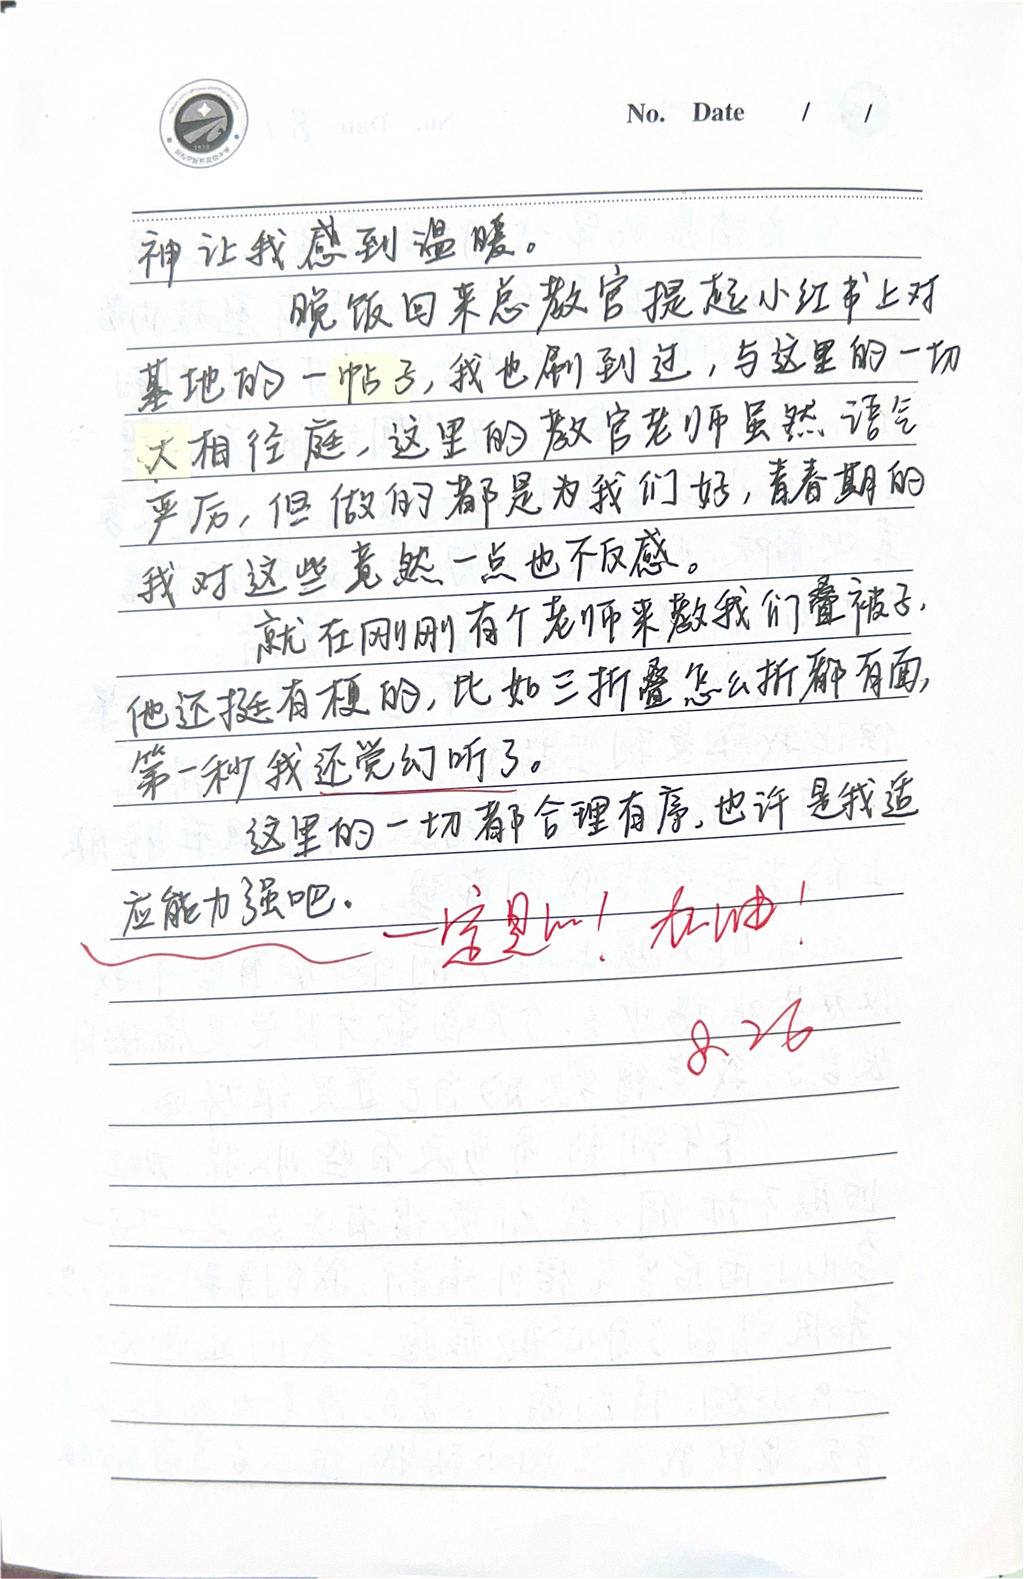 No. Date / /
神让我感到温暖。
晚饭回来总教官提起小红书上对
基地的一帖子,我也刷到过,与这里的一切
大相径庭,这里的教官老师虽然语气
严厉,但做的都是为我们好,青春期的
我对这些竟然一点也不反感。
就在刚刚有个老师来教我们叠被子.
他还挺有梗的,比如三折叠怎么折都有面,
第一秒我还觉幻听了。
这里的一切都合理有序,也许是我适
应能力强吧.
一定是!加油!
8.26